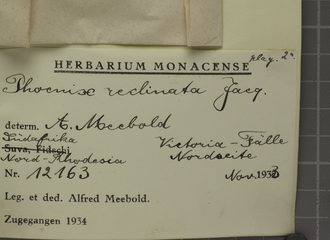 plag. 2a.
HERBARIUM MONACENSE
Phoenix reclinata Jacq.
determ. A. Meebold
Südafrika
Suva, Fidschi Victoria-Fälle
Nord-Rhodesia Nordseite
Nr. 12163 Nov. 1933
Leg. et ded. Alfred Meebold.
Zugegangen 1934